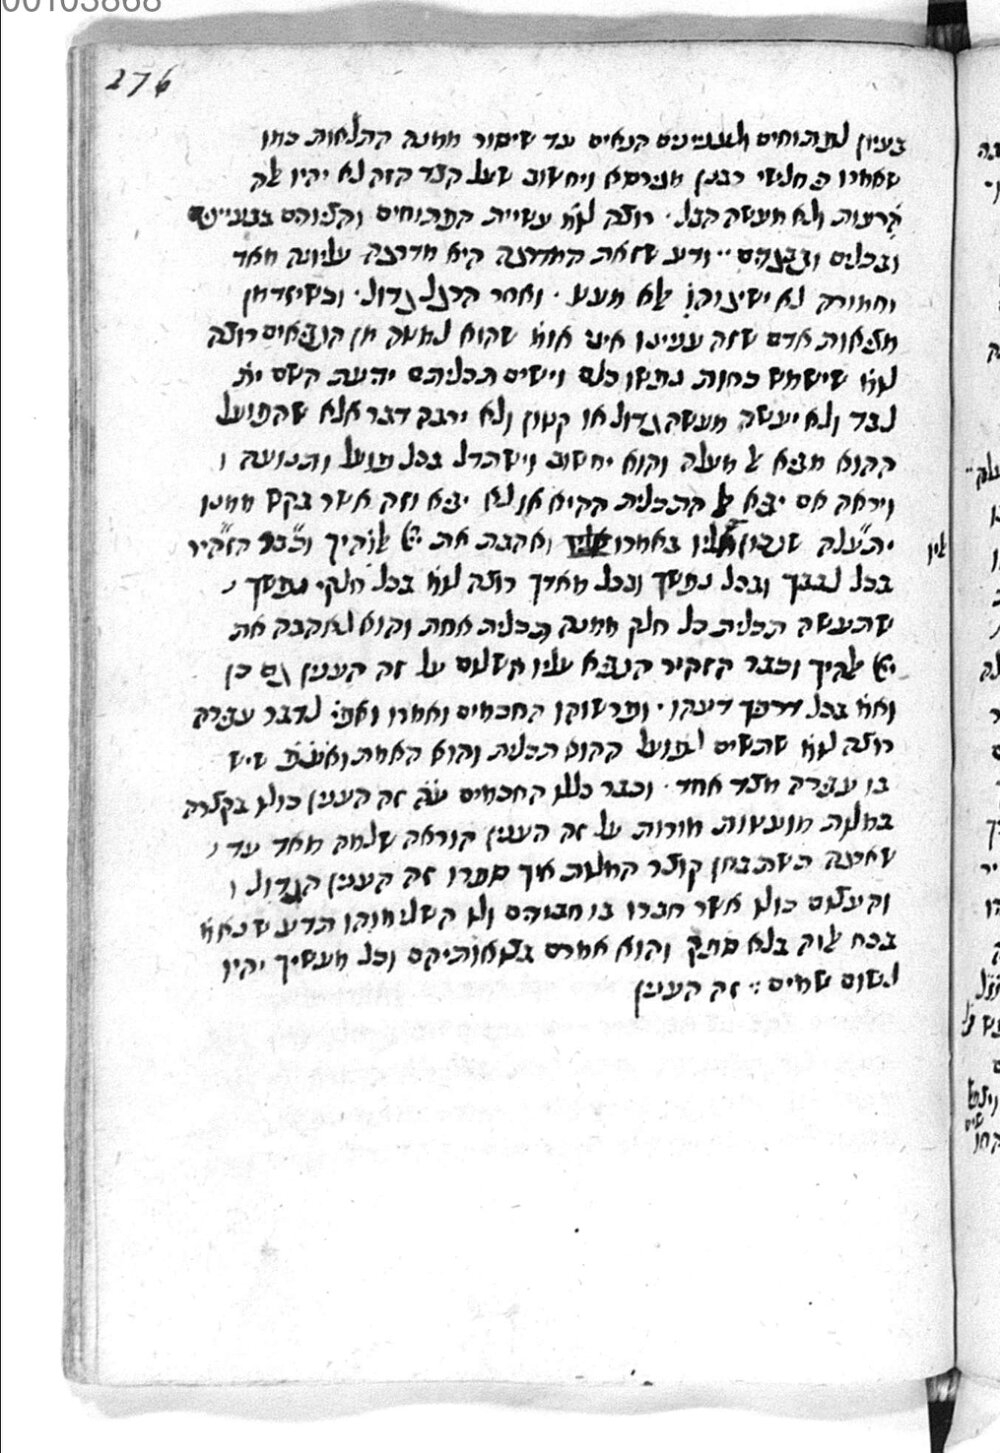 00103868
276
בעיון לפתוחים ולעניינים הנאים עד שיסור ממנה התלאות כמו
שאמרו פ חלשי רבנן מגירסא ויחשוב שעל הצד הזה לא יהיו אלה
הרעות ולא מעשה הבל · רוצה לומ עשיית הפתוחים והציורים בבניינים
ובכלים ובבגדים ·· ודע שזאת המדרגה היא מדרגה עליונה מאד
וחמורה לא ישיגוה אלא מעט · ואחר הרגל גדול · וכשיזדמן
מציאות אדם שזה עניינו איני אומ שהוא למטה מן הנביאים רוצה
לומ שישמש כחות נפשו כלם וישים תכליתם ידיעת השם ית
לבד ולא יעשה מעשה גדול או קטון ולא ידבר דבר אלא שהפועל
ההוא מביא ל מעלה והוא יחשוב וישתדל בכל פועל ותנועה ו
ויראה אם יביא ל התכלית ההיא או לא יביא וזה אשר בקש ממנו
ית״עלה שנכוון אליו באמרו ואהבת את יי אלהיך וכבר הזהיר
אלין
בכל לבבך ובכל נפשך ובכל מאדך רוצה לומ בכל חלקי נפשך י
שתעשה תכלית כל חלק ממנה תכלית אחת והוא לאהבה את
יי אלהיך וכבר הזהיר הנביא עליו השלום על זה הענין גם כן
ואמ בכל דרכיך דעהו · ופרשוהו החכמים ואמרו ואפי לדבר עבירה
רוצה לומ שתשים לפועל ההוא תכלית והוא האמת ואעפ שיש
בו עבירה מצד אחד · וכבר כללו החכמים עה זה הענין כולו בקצרה
במלות מועטות מורות על זה הענין הוראה שלמה מאד עד י
שאתה תשתבחן קוצר המלות איך ספרו זה הענין הגדול ו
והעצום כולו אשר חברו בו חבורים ולא השלימוהו תדע שנאמ
בכח אלוה בלא ספק והוא אמרם בצוואותיהם וכל מעשיך יהיו
לשום שמים :· זה הענין